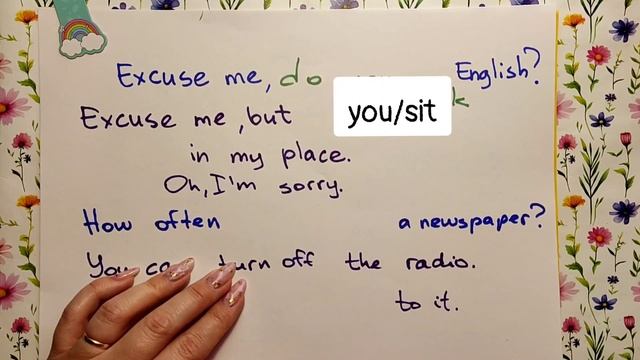 Excuse me, do English?
Excuse me, but you/sit
in my place.
Oh, I'm sorry.
How often a newspaper?
You turn off the radio.
to it.